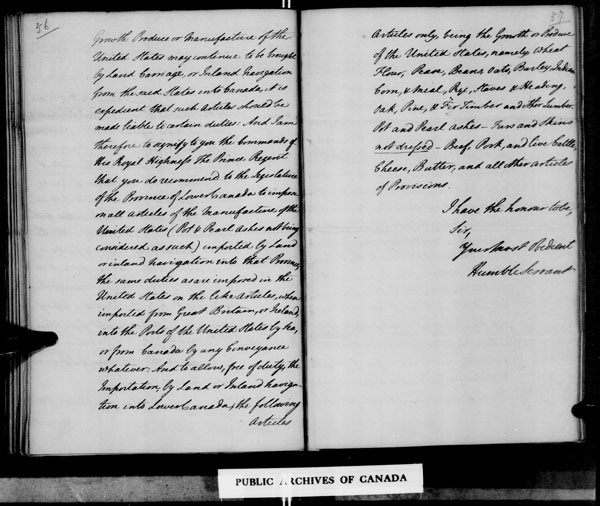 56
Growth Produce or Manufacture of the
United States may continue to be brought
by Land Carriage or Inland Navigation
from the said States into Canada, it is
expedient that such Articles should be
made liable to certain duties. And I am
therefore to signify to you the Commands of
His Royal Highness The Prince Regent
that you do recommend to the Legislature
of the Province of Lower Canada to impose
on all articles of the Manufacture of the
United States (Pot & Pearl Ashes not being
considered as such) imported by Land
or inland navigation into that Province,
the same duties as are imposed in the
United States on the like Articles, when
imported from Great Britain, or Ireland,
into the Ports of the United States by Sea,
or from Canada by any Conveyance
whatever. And to allow, free of duty, the
Importation, by Land or Inland naviga-
tion into Lower Canada, the following
Articles
57
Articles only, being the Growth or Produce
of the United States, namely Wheat
Flour, Pease, Beans, Oats, Barley, Indian
Corn, & Meal, Rye, Staves & Heading,
Oak, Pine, & Fir Timber and other Lumber
Pot and Pearl Ashes - Furs and Skins
not dressed - Beef, Pork, and live Cattle,
Cheese, Butter, and all other articles
of Provisions.
I have the honour to be,
Sir,
Your most Obedient
Humble Servant
PUBLIC ARCHIVES OF CANADA